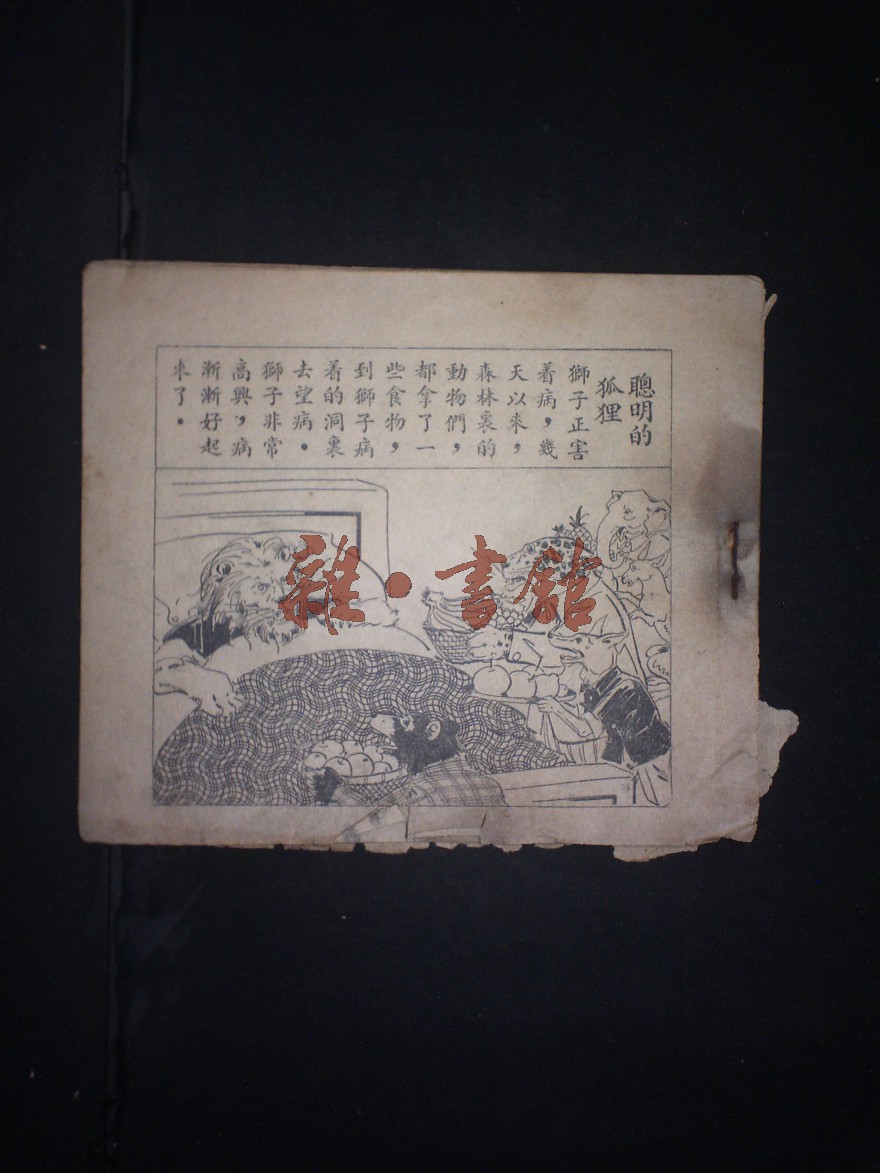 聰明的
狐狸
獅子正害
着病，幾
天以來，
森林裏的
動物們，
都拿了一
些食物，
到獅子病
着的洞裏
去望病。
獅子非常
高興，病
漸漸好起
來了。
雜·書館